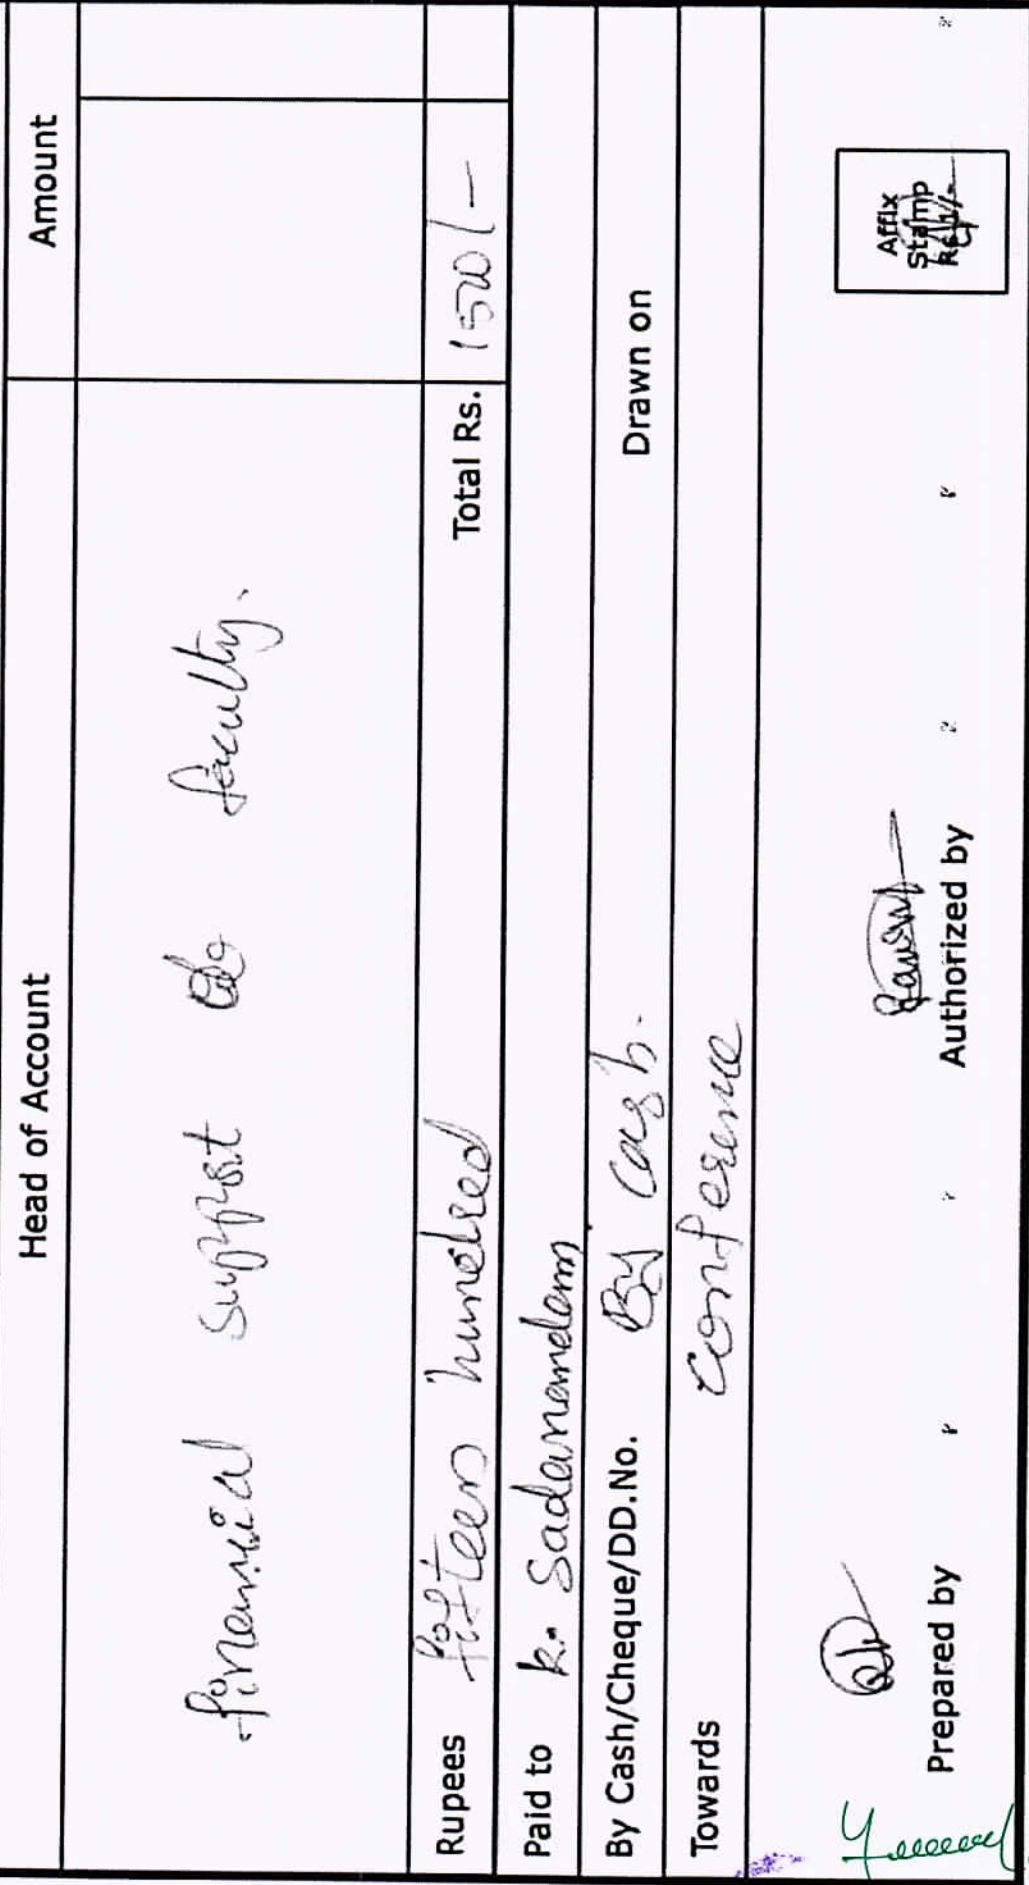 Head of Account Amount
financial support to faculty.
Total Rs. 1500/-
Rupees fifteen hundred
Paid to k. Sadanandam
By Cash/Cheque/DD.No. By cash. Drawn on
Towards conference
Affix
Stamp
Rs.1/-
Prepared by Authorized by